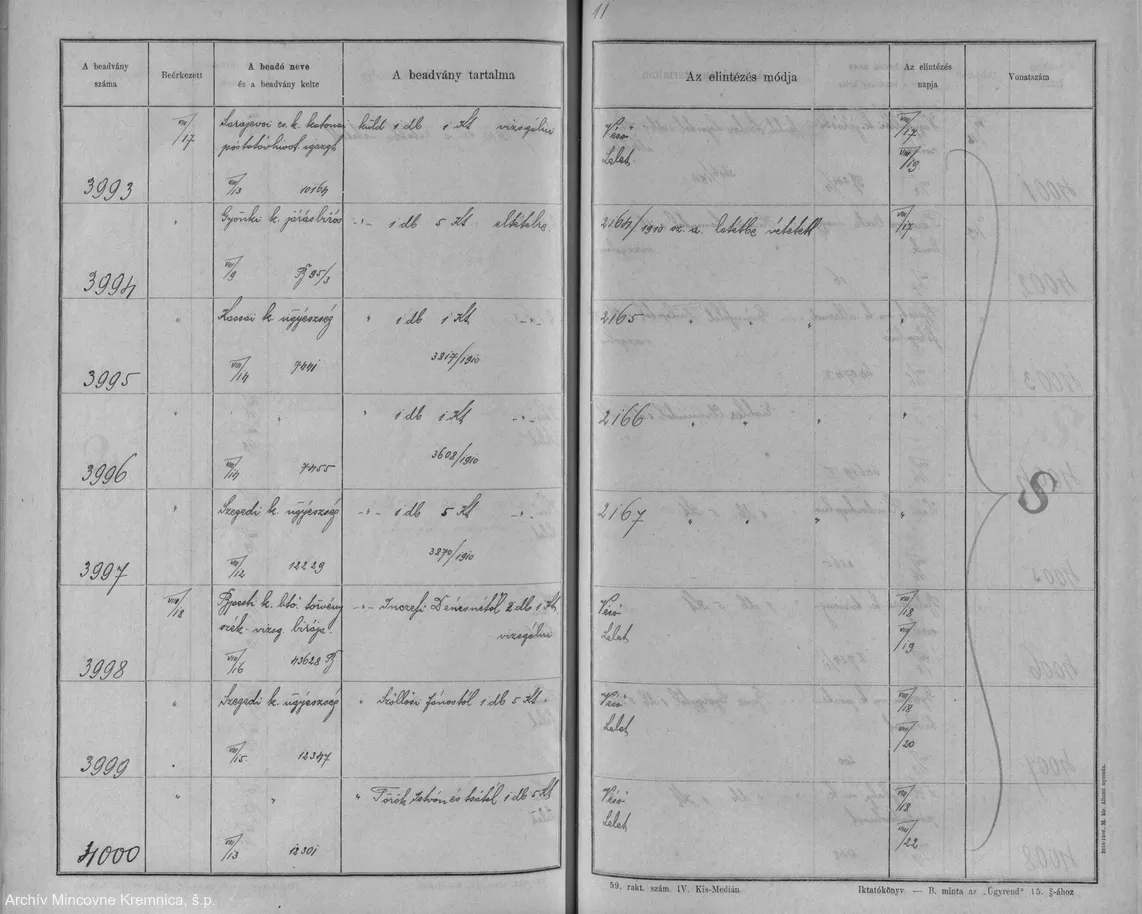 11
A beadvány száma
Beérkezett
A beadó neve és a beadvány kelte
A beadvány tartalma
Az elintézés módja
Az elintézés napja
Vonatszám
3993
VIII/17
Sarajevoi cs. k. katonai
küld 1 db 1 Kt vizsgálni
VIII/13 10164
Véső
Lelet
VIII/17
VIII/19
3994
"
Gyönki k. járásbiros
-"- 1 db 5 Kt eltételre
VIII/9 B 95/3
2164/1910 sz. a. letétbe vétetett
VIII/17
3995
"
Kassai k. ügyészség
" 1 db 1 Kt -"-
VIII/14 7441
3817/1910
2165 " " "
"
3996
" "
" 1 db 1 Kt -"-
VIII/14 7455
3608/1910
2166 " " "
"
3997
"
Szegedi k. ügyészség
-"- 1 db 5 Kt -"-
VIII/12 12229
3870/1910
2167 " " "
"
S
3998
VIII/18
Bpesti k. btő. törvény
szék. vizsg. birája.
-"- Inczefi Dénesnétől 2 db 1 Kt
vizsgálni
VIII/16 43628 B
Véső
Lelet
VIII/18
VIII/19
3999
Szegedi k. ügyészség
" Szöllősi Jánostól 1 db 5 Kt "
VIII/15. 12347
Véső
Lelet
VIII/18
VIII/20
4000
" "
" Török István és tsától 1 db 5 Kt
VIII/13 12301
Véső
Lelet
VIII/18
VIII/22
59. rakt. szám. IV. Kis-Medián.
Iktatókönyv. — B. minta az „Ügyrend" 15. §-ához
Archív Mincovne Kremnica, š.p.